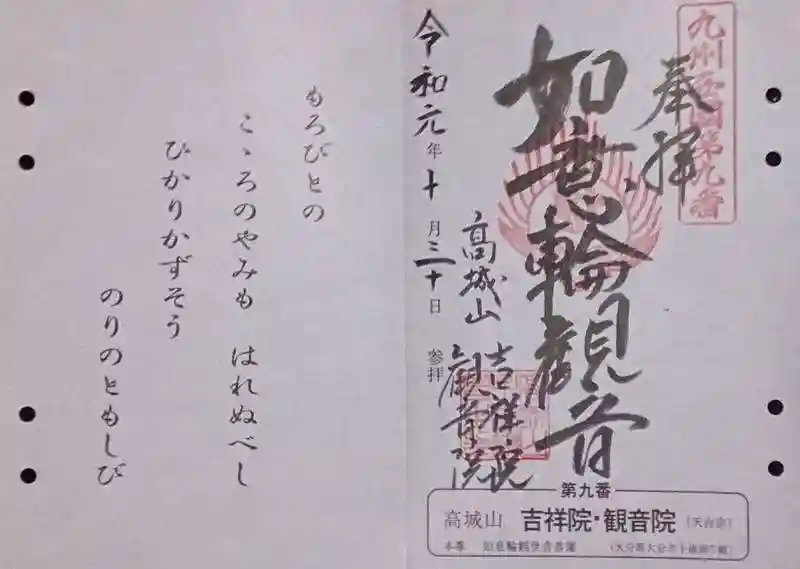 九州西国第九番
奉拝
如意輪観音
高城山 吉祥院
観音院
令和元年十月三十日 参拝
第九番
高城山 吉祥院・観音院 (天台宗)
本尊 如意輪観世音菩薩
もろびとの
こゝろのやみも はれぬべし
ひかりかずそう
のりのともしび